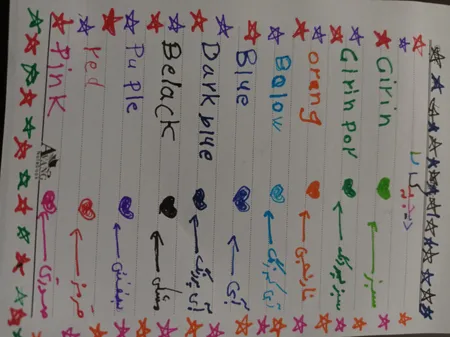 Girin سبز
Girin por سبز پررنگ
oreng نارنجی
Balov آبی کمرنگ
Blue آبی
Dark blue آبی پررنگ
Belack مشکی
Puple بنفش
Red قرمز
Pink صورتی